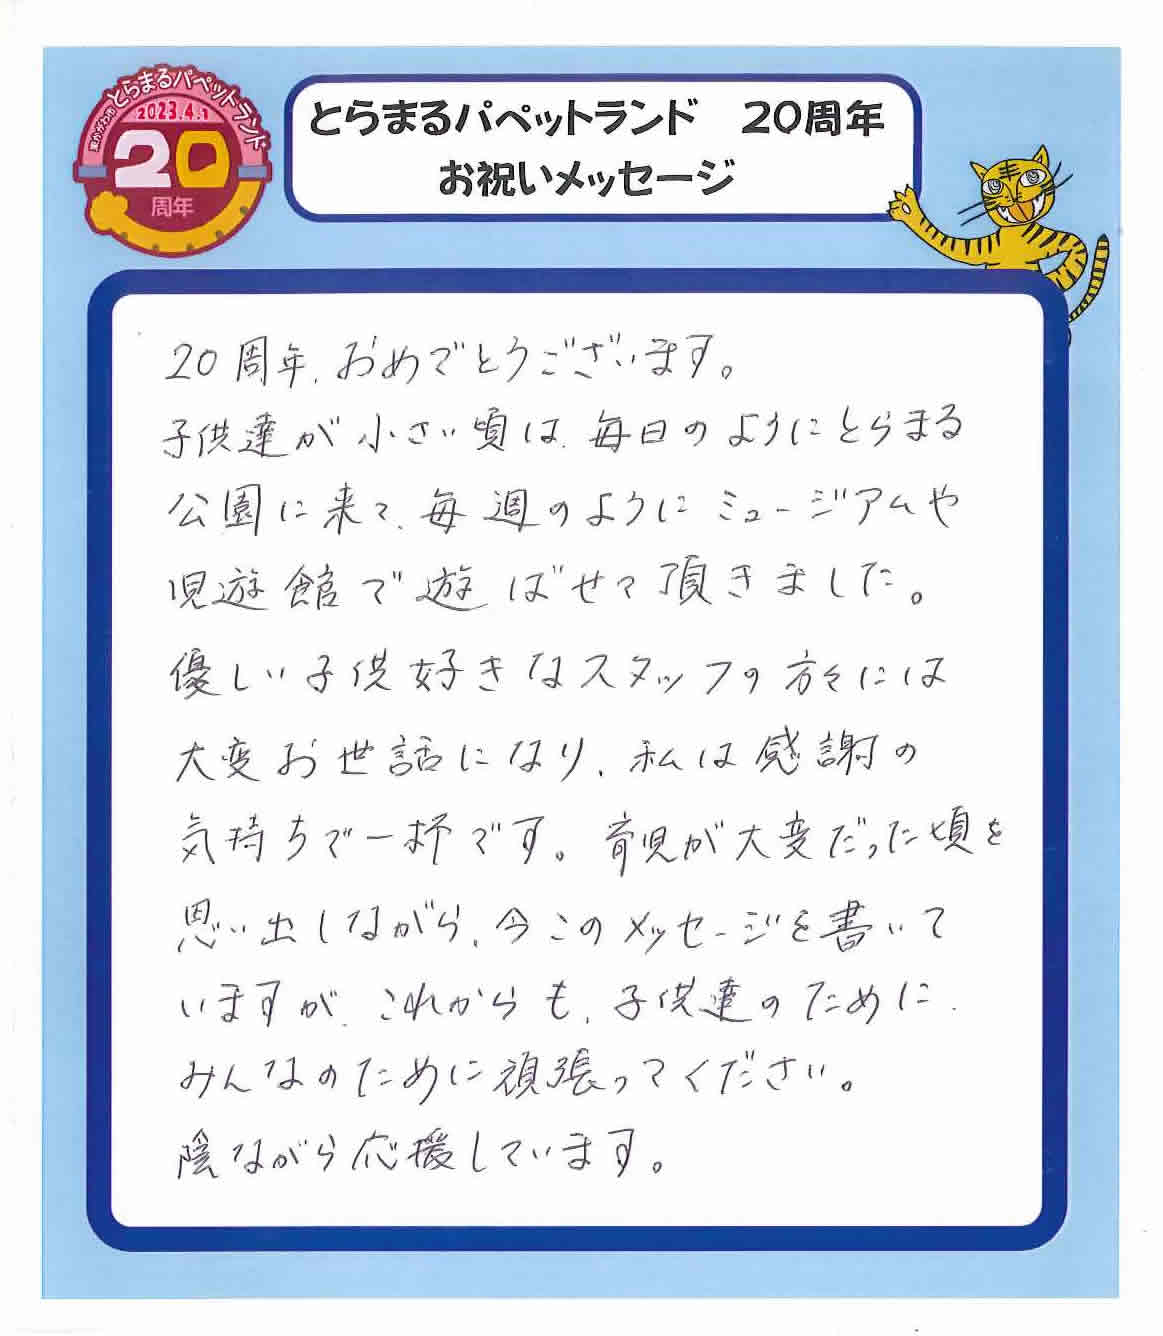 東かがわ市とらまるパペットランド
2023.4.1
20
周年
とらまるパペットランド　20周年
お祝いメッセージ
20周年、おめでとうございます。
子供達が小さい頃は、毎日のようにとらまる
公園に来て、毎週のようにミュージアムや
児遊館で遊ばせて頂きました。
優しい子供好きなスタッフの方々には
大変お世話になり、私は感謝の
気持ちで一杯です。育児が大変だった頃を
思い出しながら、今このメッセージを書いて
いますが、これからも、子供達のために、
みんなのために頑張ってください。
陰ながら応援しています。